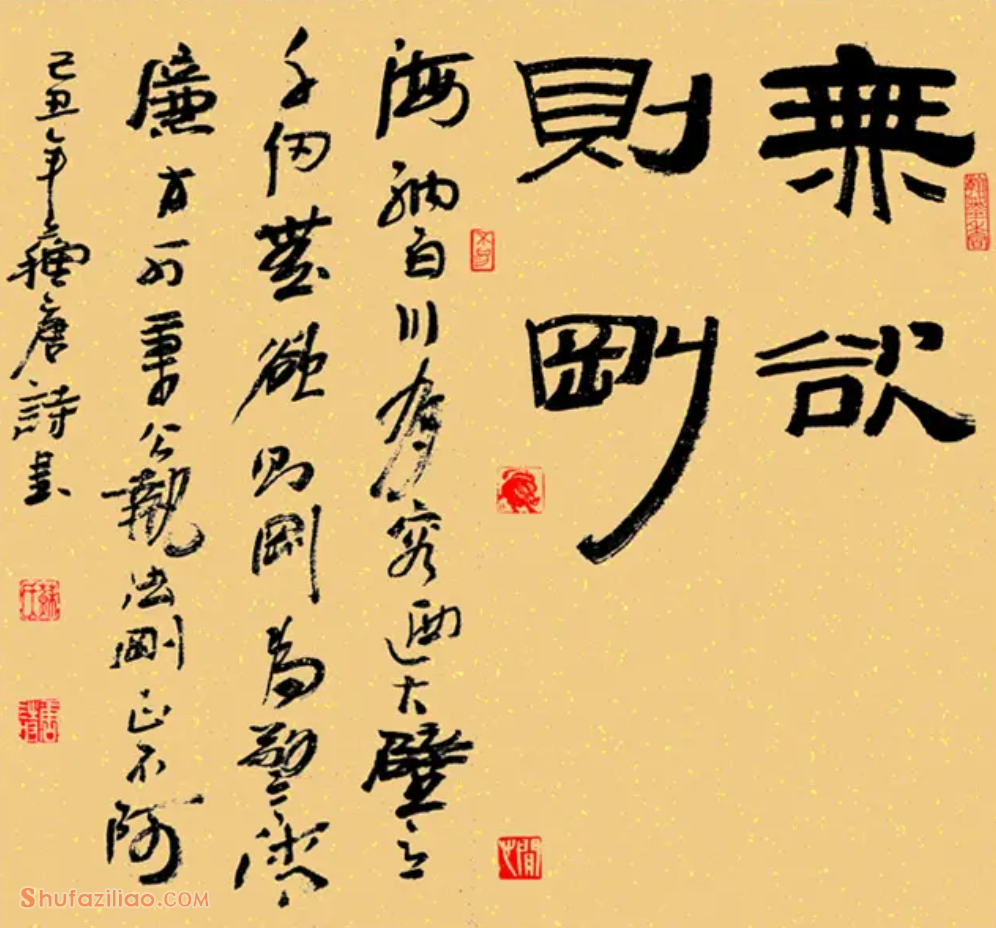 無欲
則剛
海納百川有容迺大壁立
千仞無欲則剛為警潔
廉方可秉公執法剛正不阿
己丑年唐詩書
Shufaziliao.COM